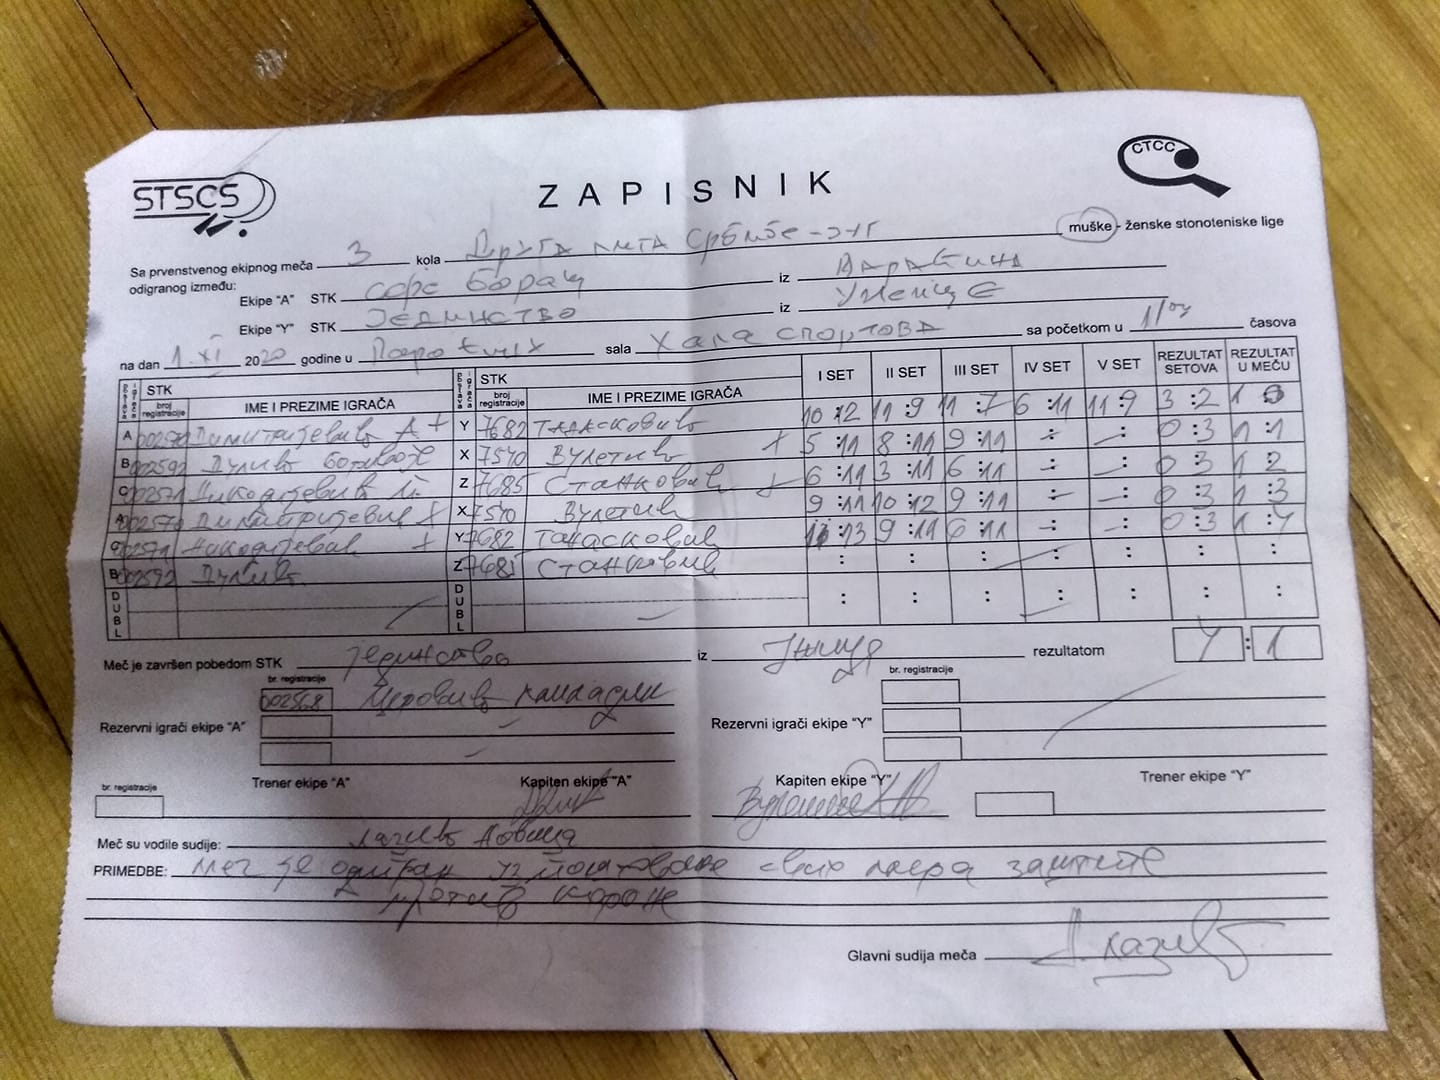 STSCS
ZAPISNIK
СТСС
Sa prvenstvenog ekipnog meča 3 kola Друга лига Србије - muške - ženske stonoteniske lige
odigranog između:
Ekipe "A" STK Борац iz Параћина
Ekipe "Y" STK Јединство iz
na dan 1. XI 2020 godine u sala Хала спортова sa početkom u časova
postava igrača STK broj registracije IME I PREZIME IGRAČA postava igrača STK broj registracije IME I PREZIME IGRAČA I SET II SET III SET IV SET V SET REZULTAT SETOVA REZULTAT U MEČU
A Димитријевић А + Y 7682 Танасковић 10 :12 11 :9 11 :7 6 :11 11 :9 3 :2 1 0
B 002592 Дулић X 7540 Вулетић + 5 :11 8 :11 9 :11 - : - : 0 :3 1 :1
C 002571 Никодијевић Z 7685 Станковић + 6 :11 3 :11 6 :11 - : - : 0 3 1 2
A 002570 Димитријевић X 7540 Вулетић 9 :11 10 :12 9 :11 - : - : 0 :3 1 :3
C 002571 Никодијевић Y 7682 Танасковић 11 :13 9 :11 6 :11 - : - : 0 :3 1 :4
B 002592 Дулић Z 7685 Станковић : : : : : : :
DUBL DUBL : : : : : : :
Meč je završen pobedom STK Јединство iz rezultatom 4 : 1
br. registracije br. registracije
002568
Rezervni igrači ekipe "A" Rezervni igrači ekipe "Y"
br. registracije Trener ekipe "A" Kapiten ekipe "A" Kapiten ekipe "Y" Trener ekipe "Y"
Meč su vodile sudije: Лазић Новица
PRIMEDBE: Меч је одигран уз поштовање свих мера заштите
против короне
Glavni sudija meča Лазић